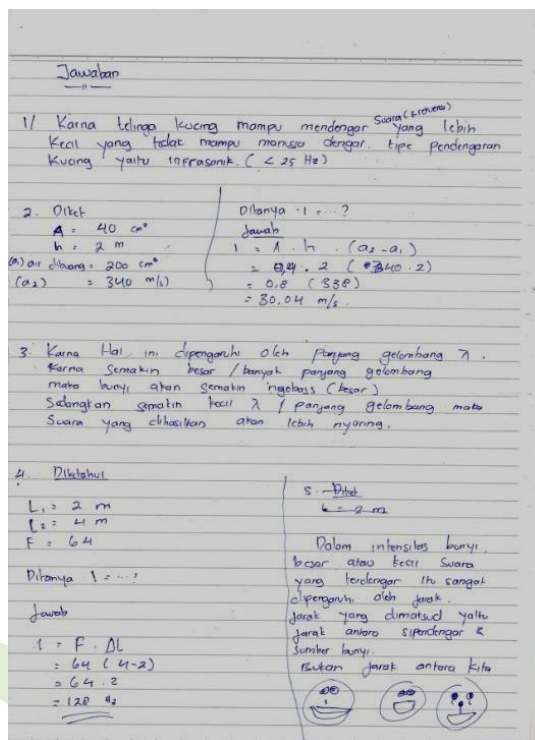 Jawaban
1/ Karna telinga kucing mampu mendengar Suara (frekuensi) yang lebih
Kecil yang tidak mampu manusia dengar. tipe pendengaran
Kucing yaitu infrasonik. ( < 25 Hz )
2. Diket
A = 40 cm²
h = 2 m
(a₁) air dibuang = 200 cm²
(a₂) = 340 m/s)
Ditanya ·1 = ...?
Jawab
1 = A . h . (a₂ - a₁)
= 0,4 . 2 ( 340 . 2)
= 0,8 (338)
= 30,04 m/s.
3. Karna Hal ini dipengaruhi oleh panjang gelombang λ.
Karna semakin besar / banyak panjang gelombang
maka bunyi akan semakin ngebass (besar)
Sedangkan semakin kecil λ / panjang gelombang maka
Suara yang dihasilkan akan lebih nyaring.
4. Diketahui
L₁ = 2 m
L₂ = 4 m
F = 64
Ditanya 1 = ...?
Jawab
1 = F . ΔL
= 64 (4-2)
= 64 . 2
= 128 Hz
5. Diket
= 2 m
Dalam intensitas bunyi.
besar atau kecil suara
yang terdengar itu sangat
dipengaruhi oleh jarak.
Jarak yang dimaksud yaitu
jarak antara sipendengar &
sumber bunyi.
Bukan jarak antara kita